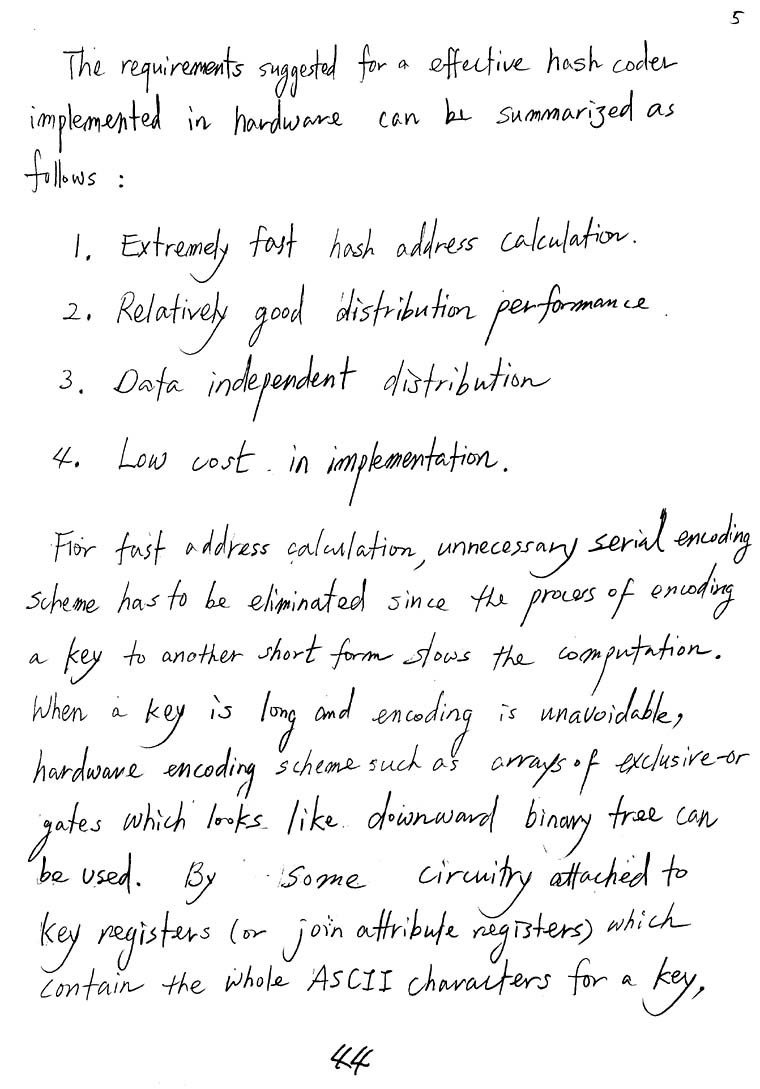 5
The requirements suggested for a effective hash coder
implemented in hardware can be summarized as
follows :
1. Extremely fast hash address calculation.
2. Relatively good distribution performance.
3. Data independent distribution
4. Low cost in implementation.
For fast address calculation, unnecessary serial encoding
scheme has to be eliminated since the process of encoding
a key to another short form slows the computation.
When a key is long and encoding is unavoidable,
hardware encoding scheme such as arrays of exclusive-or
gates which looks like downward binary tree can
be used. By some circuitry attached to
key registers (or join attribute registers) which
contain the whole ASCII characters for a key,
44